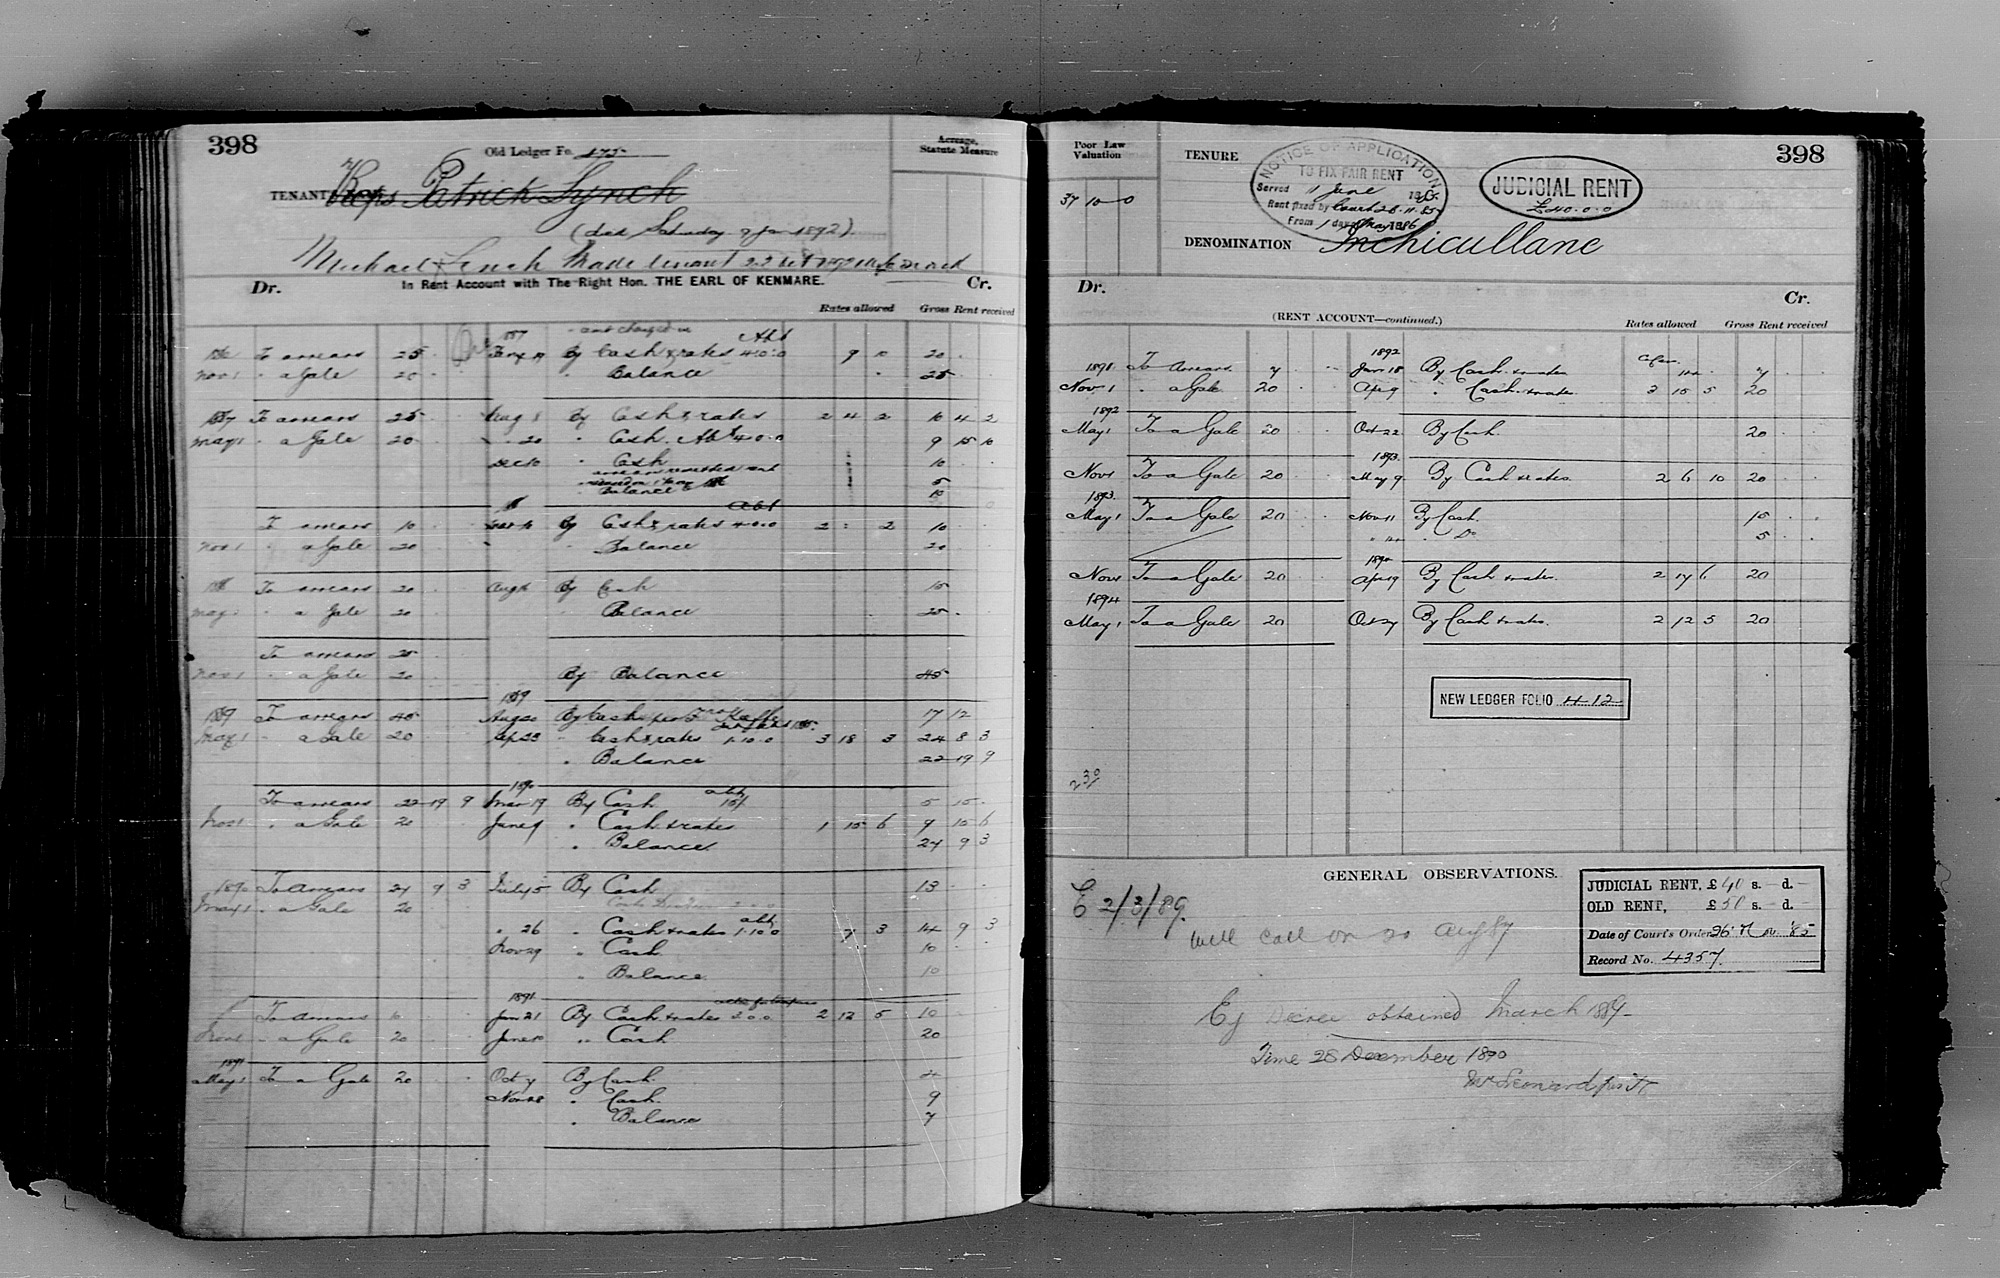 398
Old Ledger Fo. 175
Acreage, Statute Measure
TENANT Reps Patrick Lynch
(died Saturday 9 Jan 1892)
Michael Lynch Made tenant 22
In Rent Account with The Right Hon. THE EARL OF KENMARE.
Dr. Cr.
Rates allowed Gross Rent received
rent charged in
To arrears 25 By Cash & rates 4.0.0 9 10 20
Nov 1 " a Gale 20 " Balance 25
1887 To arrears 25 Aug 8 By Cash & rates 2 4 2 10 4 2
May 1 " a Gale 20 " 20 " Cash Abt 4.0.0 9 15 10
Dec 10 " Cash 10
5
" Balance 10
Abt
To arrears 10 By Cash & rates 4.0.0 2 : 2 10
Nov 1 " a Gale 20 " Balance 20
To arrears 20 Aug By Cash 15
May 1 " a Gale 20 " Balance 25
To arrears 25
Nov 1 " a Gale 20 By Balance 45
1889
1889 To arrears 45 Aug 20 By Cash 17 12
May 1 " a Gale 20 Sep 23 " Cash & rates 1.10.0 3 18 3 24 8 3
" Balance 22 19 9
1890
To arrears 22 19 9 Mar 19 By Cash 5 15
Nov 1 " a Gale 20 June 9 " Cash & rates 1 15 6 9 15 6
" Balance 27 9 3
1890 To arrears 27 9 3 July 5 By Cash 13
May 1 " a Gale 20
" 26 " Cash & rates 1.10.0 7 3 14 9 3
Nov 29 " Cash 10
" Balance 10
1891
To arrears 10 Jan 21 By Cash & rates 2.0.0 2 12 5 10
Nov 1 " a Gale 20 June 10 " Cash 20
1891
May 1 To a Gale 20 Oct 7 By Cash 4
Nov 28 " Cash 9
" Balance 7
Poor Law Valuation
37 10 0
TENURE
NOTICE OF APPLICATION
TO FIX FAIR RENT
Served 11 June
Rent fixed by Court 26.11.85
From 1 day of May 1886
JUDICIAL RENT
£40.0.0
398
DENOMINATION Inchicullane
Dr. Cr.
(RENT ACCOUNT—continued.)
Rates allowed Gross Rent received
1892
1891 To Arrears 7 Jan 18 By Cash & rates 7
Nov 1 " a Gale 20 Apr 9 " Cash & rates 3 15 5 20
1892
May 1 To a Gale 20 Oct 22 By Cash 20
1893
Nov 1 To a Gale 20 May 9 By Cash & rates 2 6 10 20
1893
May 1 To a Gale 20 Nov 11 By Cash 15
" Do 5
Nov 1 To a Gale 20 Apr 19 By Cash & rates 2 17 6 20
1894
May 1 To a Gale 20 Oct 27 By Cash & rates 2 12 5 20
NEW LEDGER FOLIO 412
230
GENERAL OBSERVATIONS.
JUDICIAL RENT, £40 s. - d. -
OLD RENT, £50 s. - d. -
Date of Court's Order 26 Nov. '85
Record No. 4357.
E 2/3/89.
Will call on 20 Aug 87
Ej Decree obtained March 1889
Time 28 December 1890
Mr Leonard